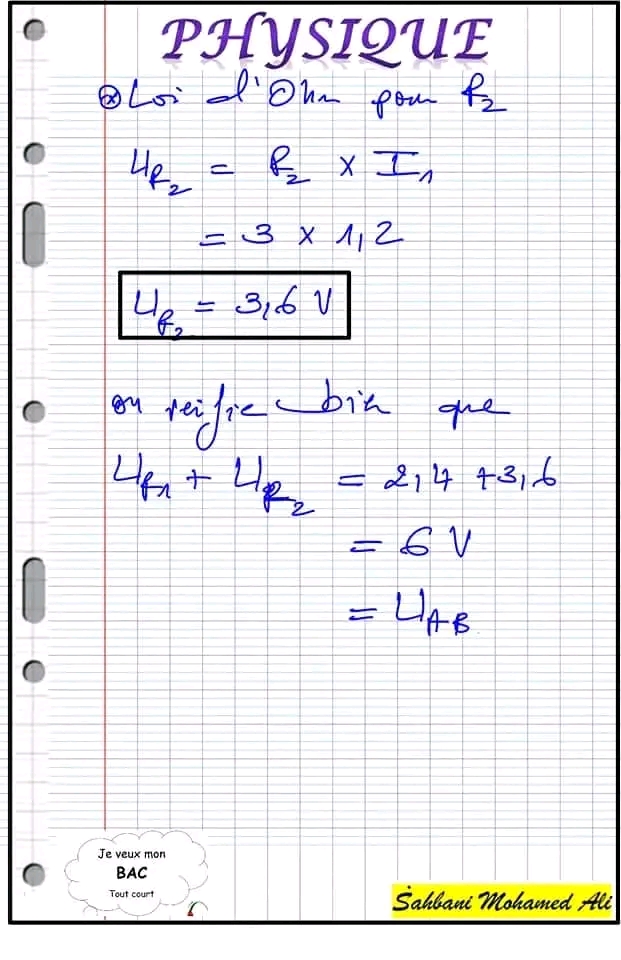 PHYSIQUE
⊗ Loi d'Ohm pour R₂
U_R₂ = R₂ × I₁
= 3 × 1,2
U_R₂ = 3,6 V
on vérifie bien que
U_R₁ + U_R₂ = 2,4 + 3,6
= 6 V
= U_AB
Je veux mon
BAC
Tout court
Sahbani Mohamed Ali